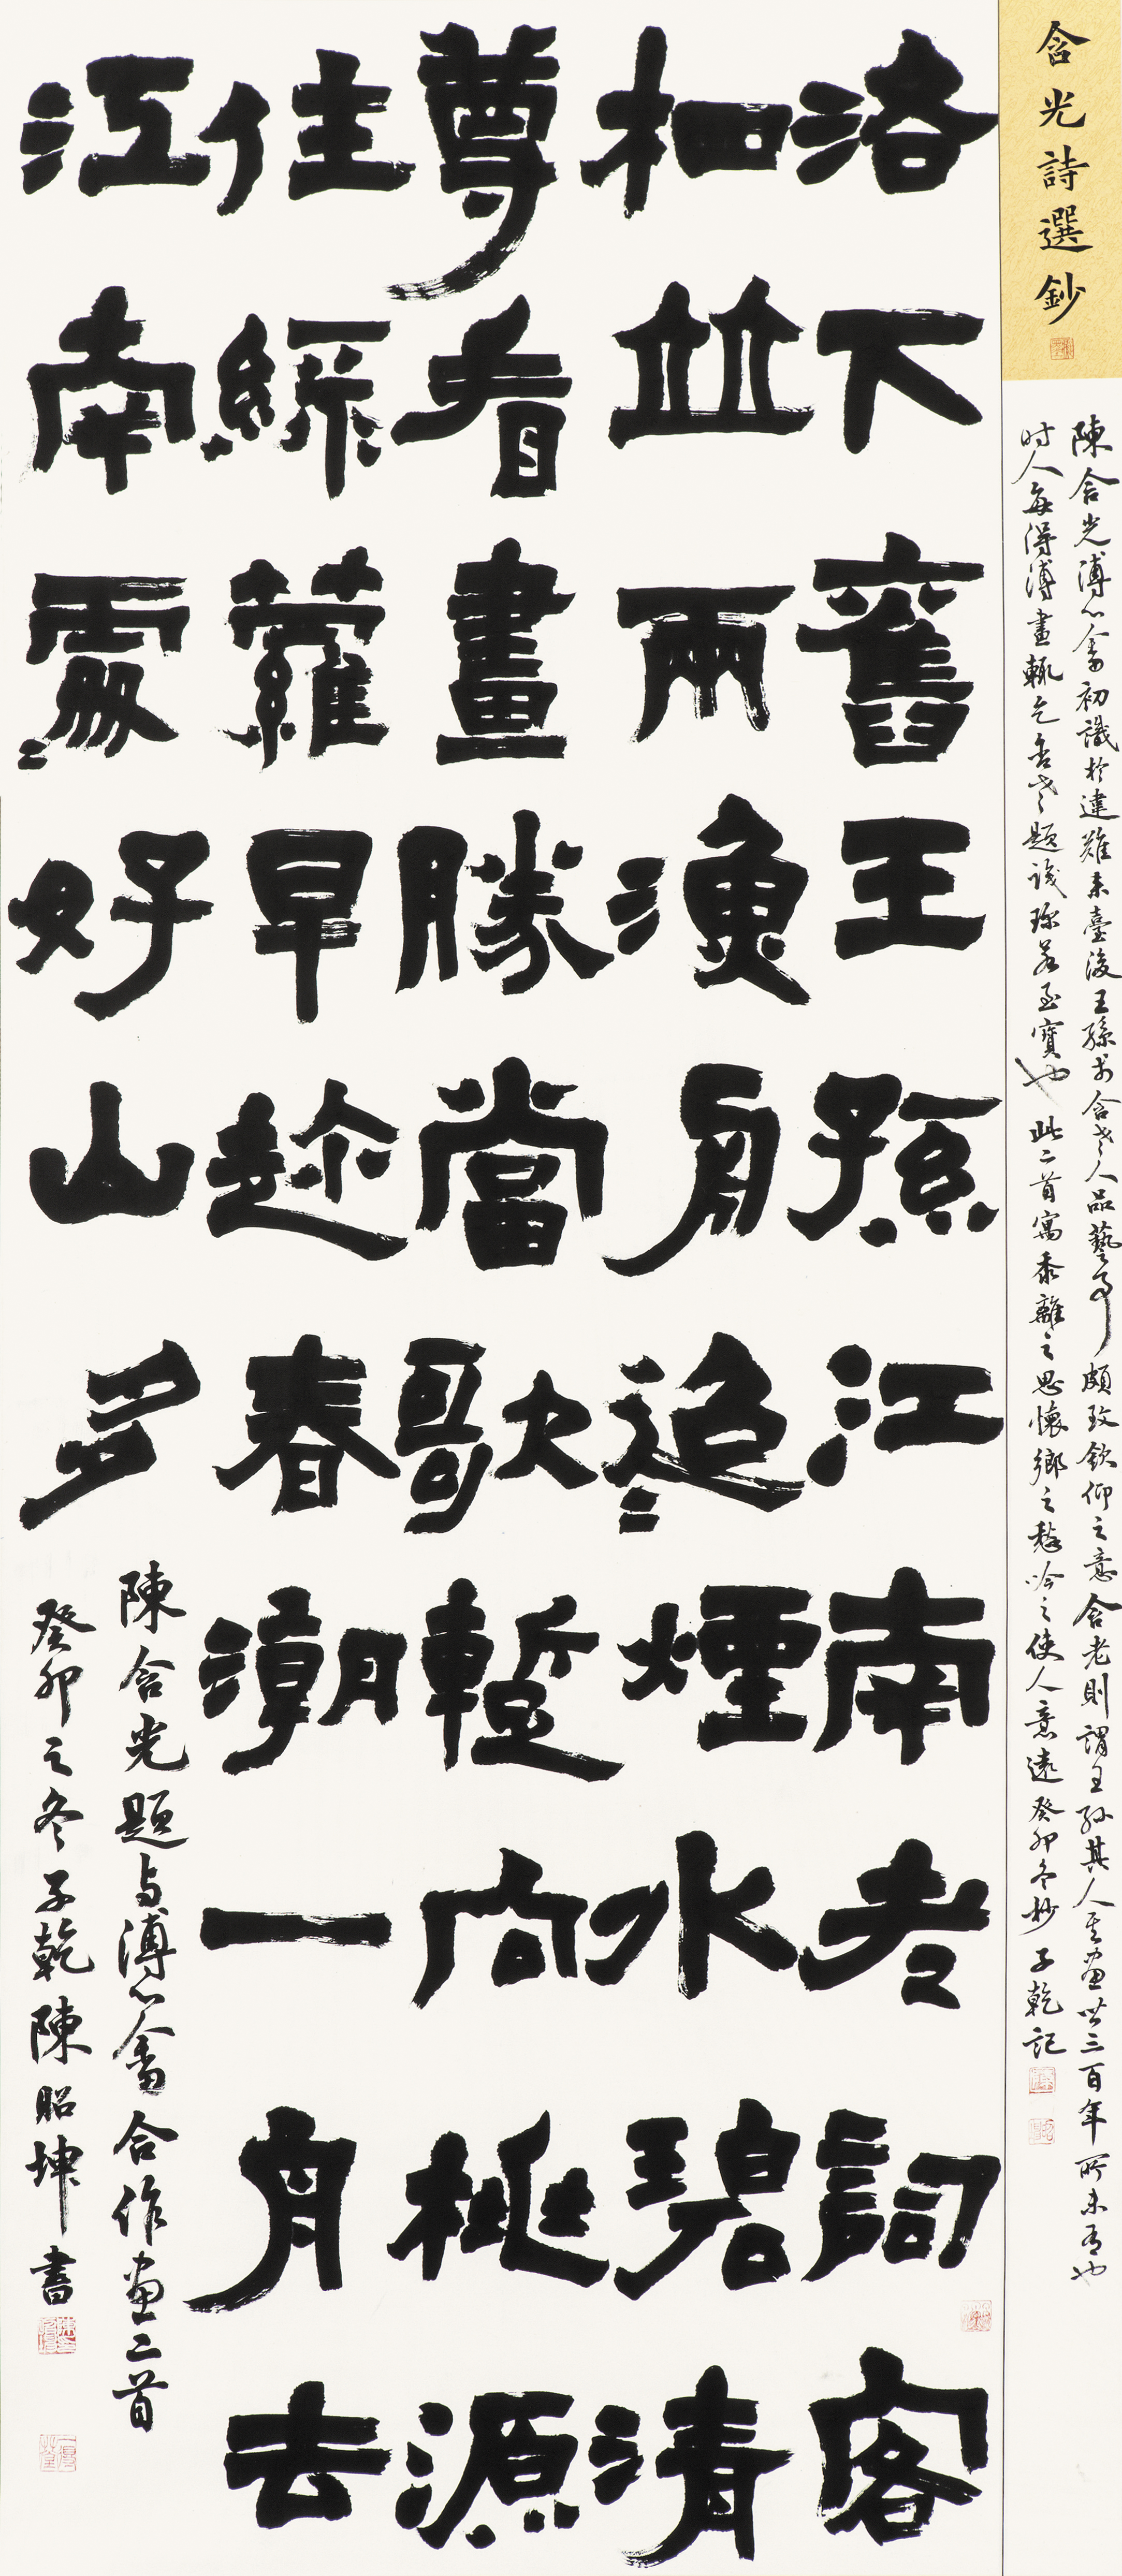 含光詩選鈔
陳含光溥心畬初識於違難來臺後王孫于含老人品藝事頗致欽仰之意含老則謂王孫其人其畫此三百年所未有也
时人每得溥畫輒乞含老題識珍若至寶也 此二首寓黍離之思懷鄉之愁吟之使人意遠癸卯冬抄 子乾記
洛下舊王孫江南老詞客
相並兩漁舟迢〻煙水碧清
尊看畫勝當歌暫向桃源
住綠蘿早趁春潮一舟去
江南處〻好山多
陳含光題与溥心畬合作畫二首
癸卯之冬子乾陳昭坤書